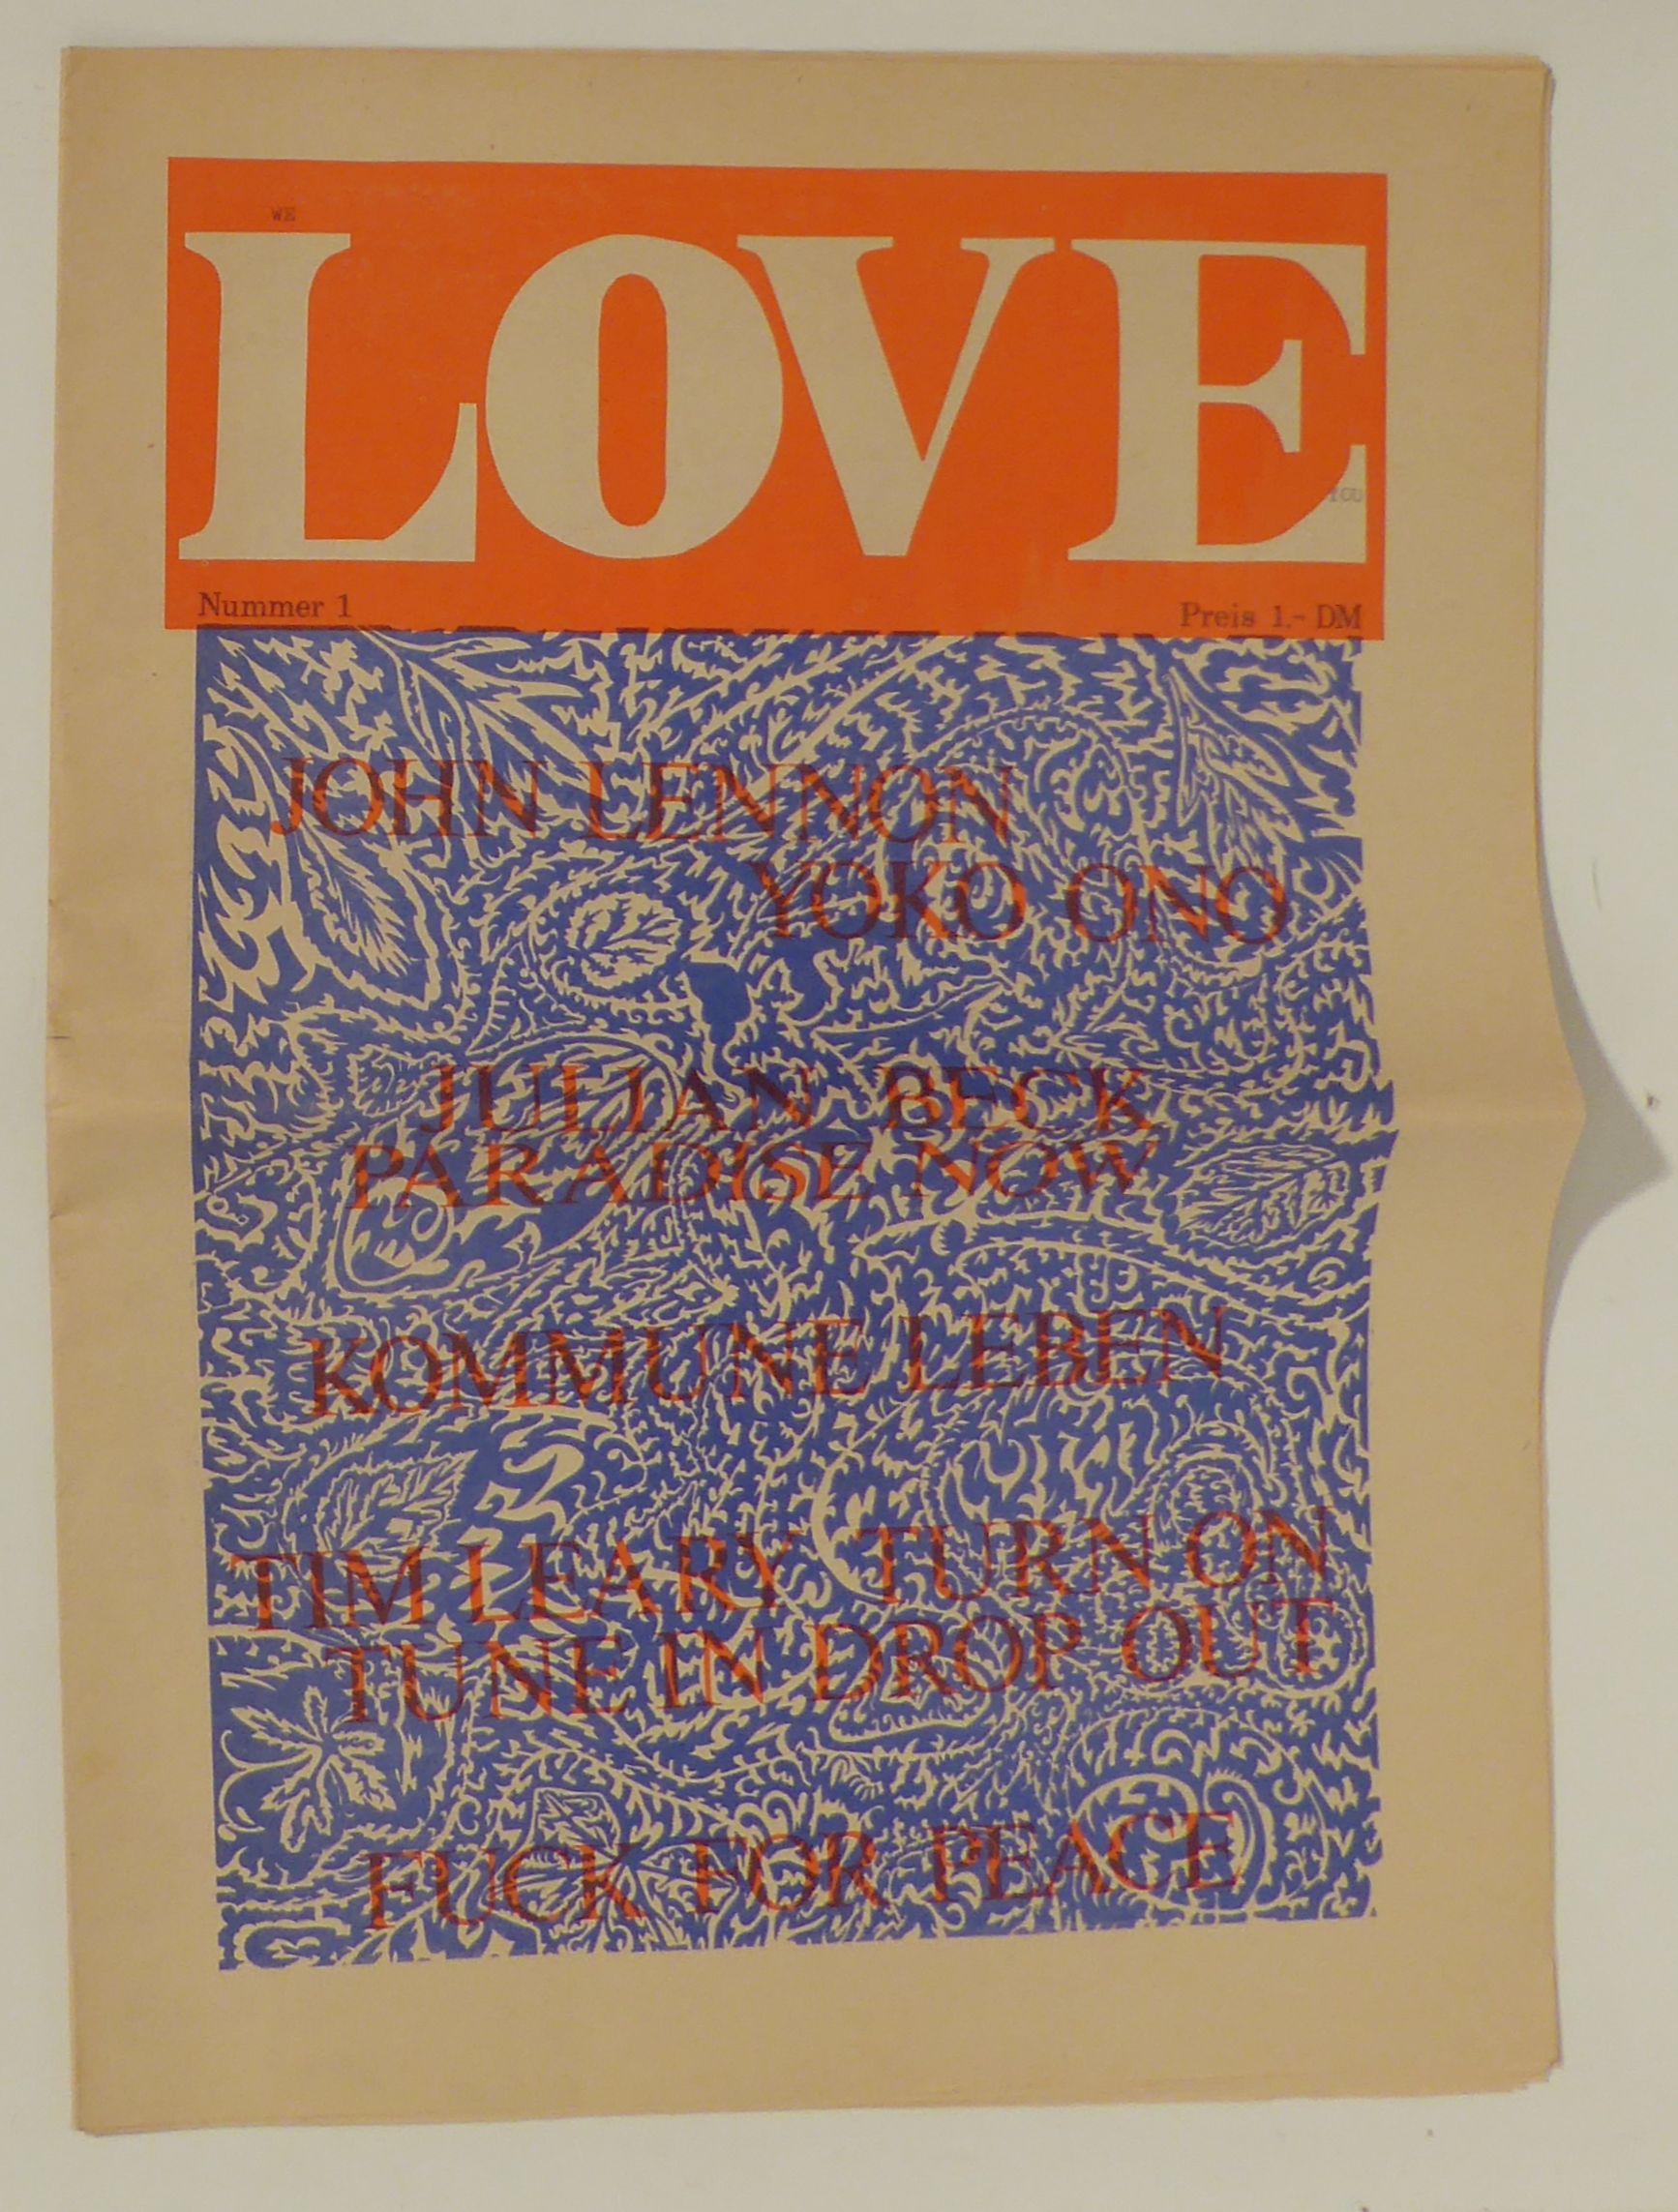 WE
LOVE
YOU
Nummer 1
Preis 1.- DM
JOHN LENNON
YOKO ONO
JULIAN BECK
PARADISE NOW
KOMMUNE LEBEN
TIM LEARY TURN ON
TUNE IN DROP OUT
FUCK FOR PEACE